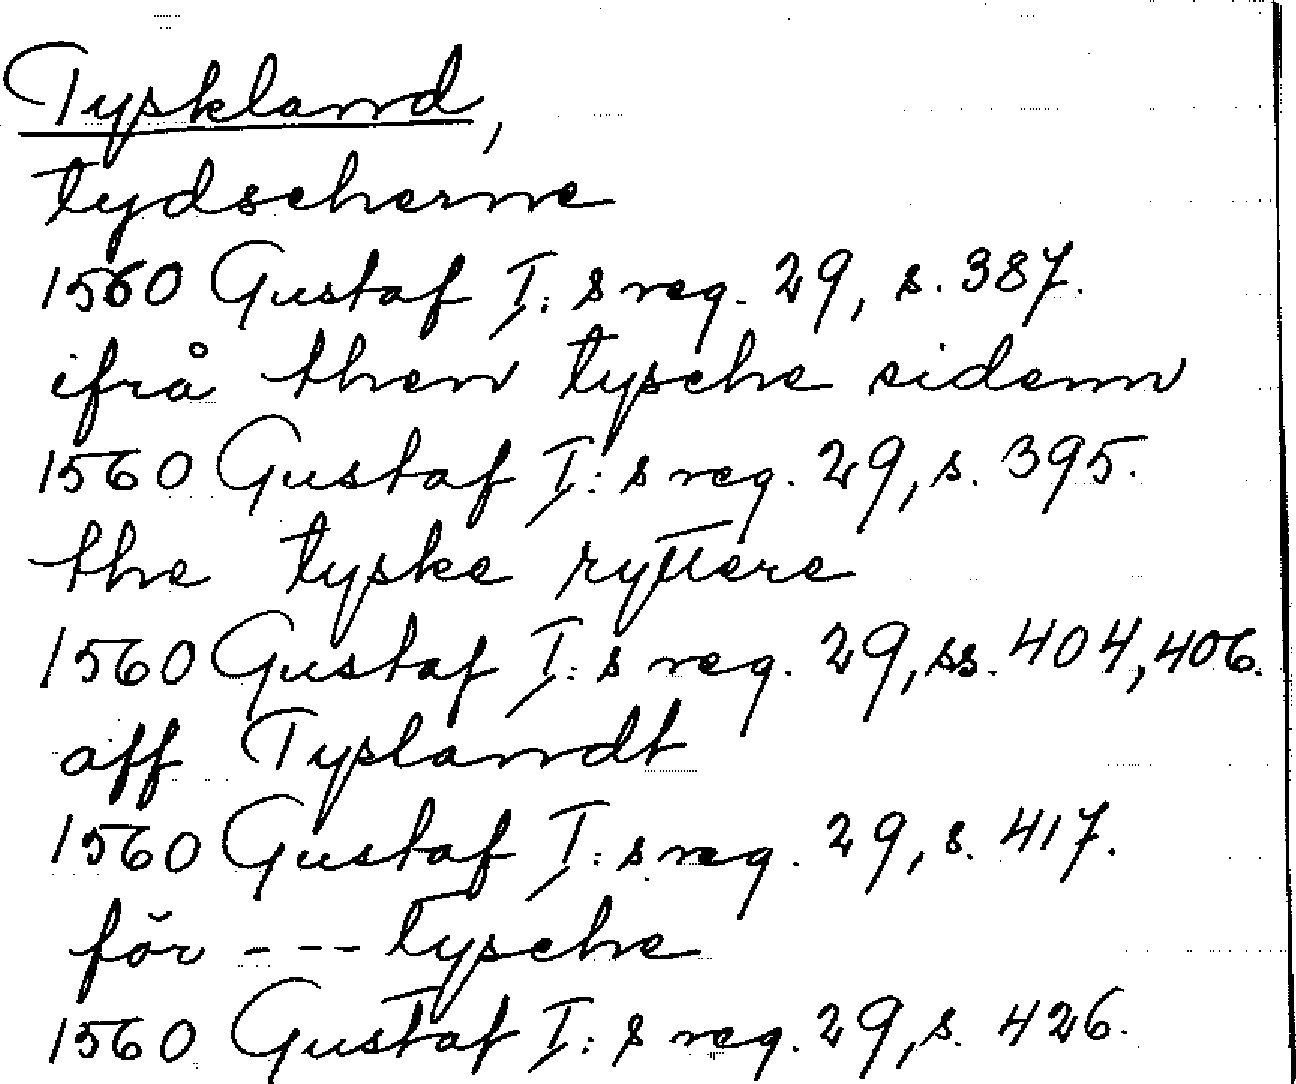 Tyskland,
tydscherne
1560 Gustaf I:s reg. 29, s. 387.
ifrå then tysche sidenn
1560 Gustaf I:s reg. 29, s. 395.
the tyske ryttere
1560 Gustaf I:s reg. 29, ss. 404, 406.
aff Tyslandt
1560 Gustaf I:s reg. 29, s. 417.
för --- tysche
1560 Gustaf I:s reg. 29, s. 426.